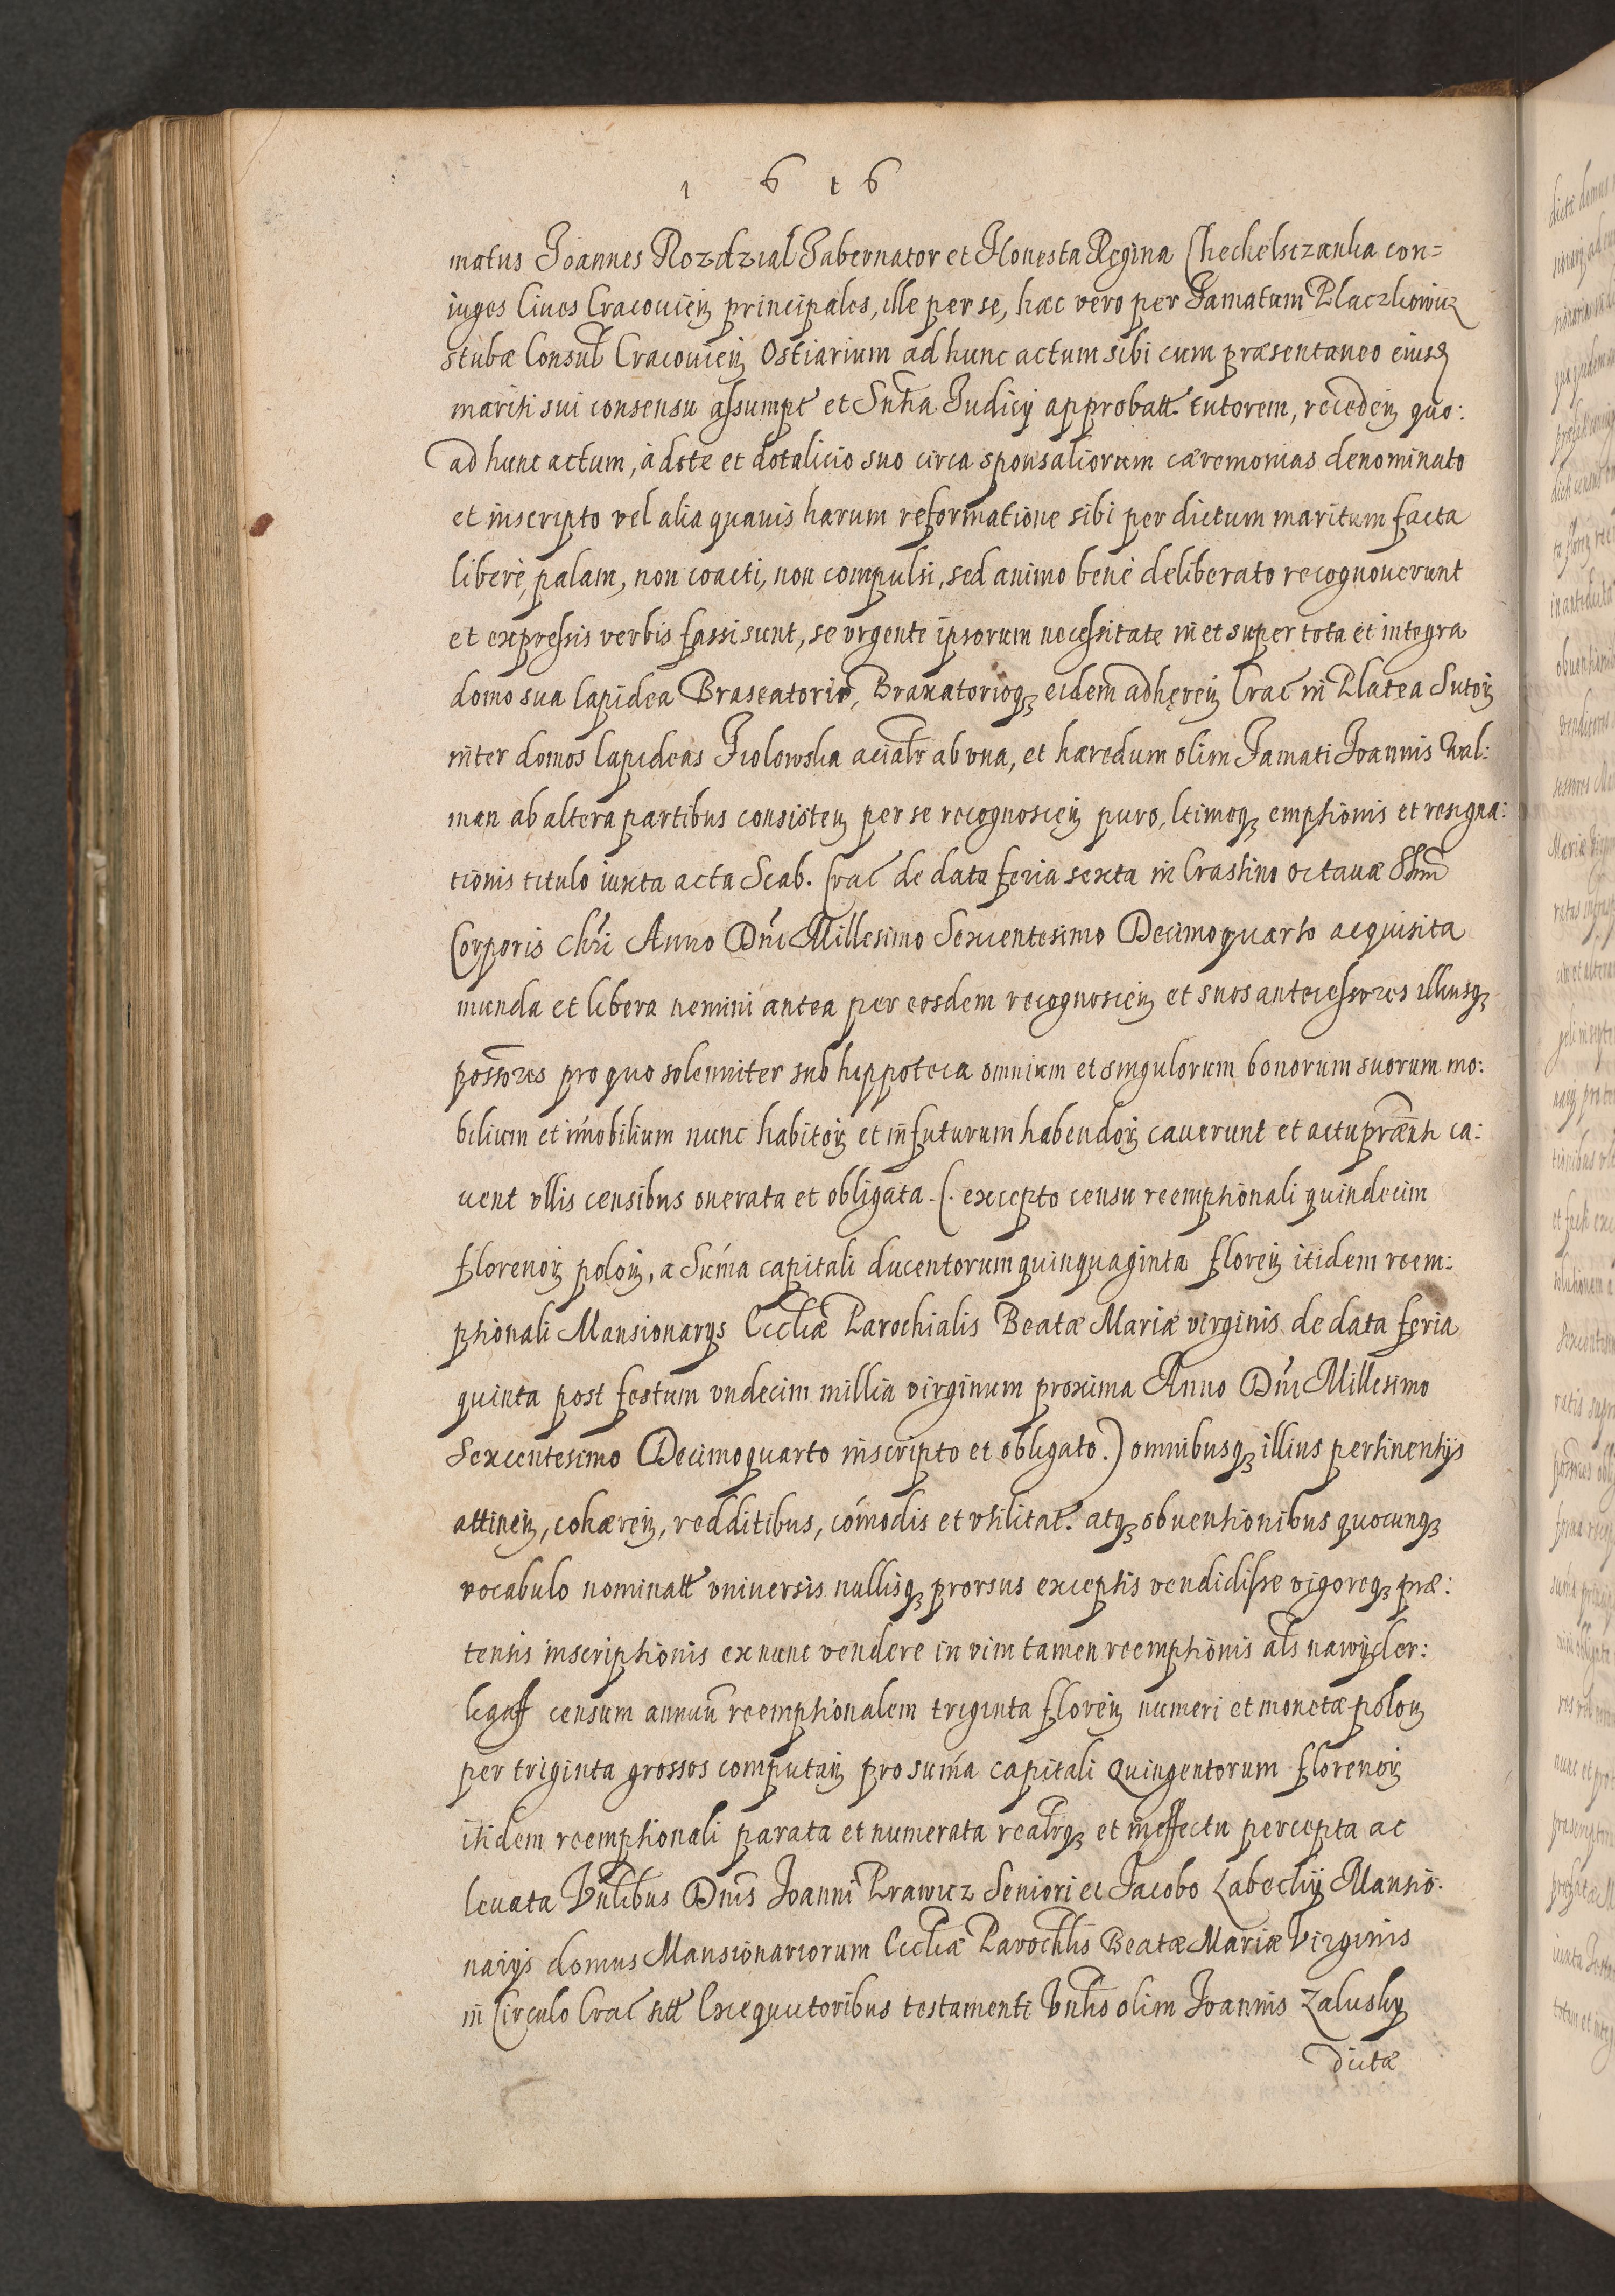 1616
matus Joannes Rozdzial Fabernator et Honesta Regina Chechelsczanka con=
iuges Ciues Cracouien principales, ille per se, hæc vero per Famatum Placzkowicz
stubæ Consul Cracouien Ostiarium ad hunc actum sibi cum præsentaneo eiusq
mariti sui consensu assumpt et Sntia Judicij approbatt tutorem, receden quo:
ad hunc actum, à dote et dotalicio suo circa sponsaliorum cæremonias denominato
et inscripto vel alia quauis harum reformatione sibi per dictum maritum facta
liberè, palam, non coacti, non compulsi, sed animo benè deliberato recognouerunt
et expressis verbis fassi sunt, se vrgente ipsorum necessitate in et super tota et integra
domo sua lapidea Braseatorio, Braxatorioq eidem adhęren Crac in Platea Sutor
inter domos lapideas Fiolowska acialr ab vna, et hæredum olim Famati Joannis Wal:
man ab altera partibus consisten per se recognoscen puro, ltimoq emptionis et resigna:
tionis titulo iuxta acta Scab. Crac de data feria sexta in Crastino octauæ SSmi
Corporis Chri Anno Dni Millesimo Sexcentesimo Decimoquarto acquisita
munda et libera nemini antea per eosdem recognoscen et suos antecessores illiusq
possores pro quo solenniter sub hippoteca omnium et singulorum bonorum suorum mo:
bilium et imobilium nunc habitor et in futurum habendor cauerunt et actu prænti ca:
uent vllis censibus onerata et obligata. (. excepto censu reemptionali quindecim
florenor polon, a Suma capitali ducentorum quinquaginta floren itidem reem:
ptionali Mansionarijs Eccliæ Parochialis Beatæ Mariæ virginis de data feria
quinta post festum vndecim millia virginum proxima Anno Dni Millesimo
Sexcentesimo Decimoquarto inscripto et obligato.) omnibusq illius pertinentijs
attinen, cohæren, redditibus, comodis et vtilitat. atq obuentionibus quocunq
vocabulo nominatt vniuersis nullisq prorsus exceptis vendidisse vigoreq præ:
tentis inscriptionis ex nunc vendere in vim tamen reemptionis als nawyder:
kgaff censum annuu reemptionalem triginta floren numeri et monetæ polon
per triginta grossos computan pro suma capitali Quingentorum florenor
itidem reemptionali parata et numerata realrq et in effectu percepta ac
leuata Vnlibus Dnis Joanni Prawicz Seniori et Jacobo Labeckij Mansio:
narijs domus Mansionariorum Eccliæ Parochlis Beatæ Mariæ Virginis
in Circulo Crac sitt Exequutoribus testamenti Vnlis olim Joannis Zalusky
dictæ